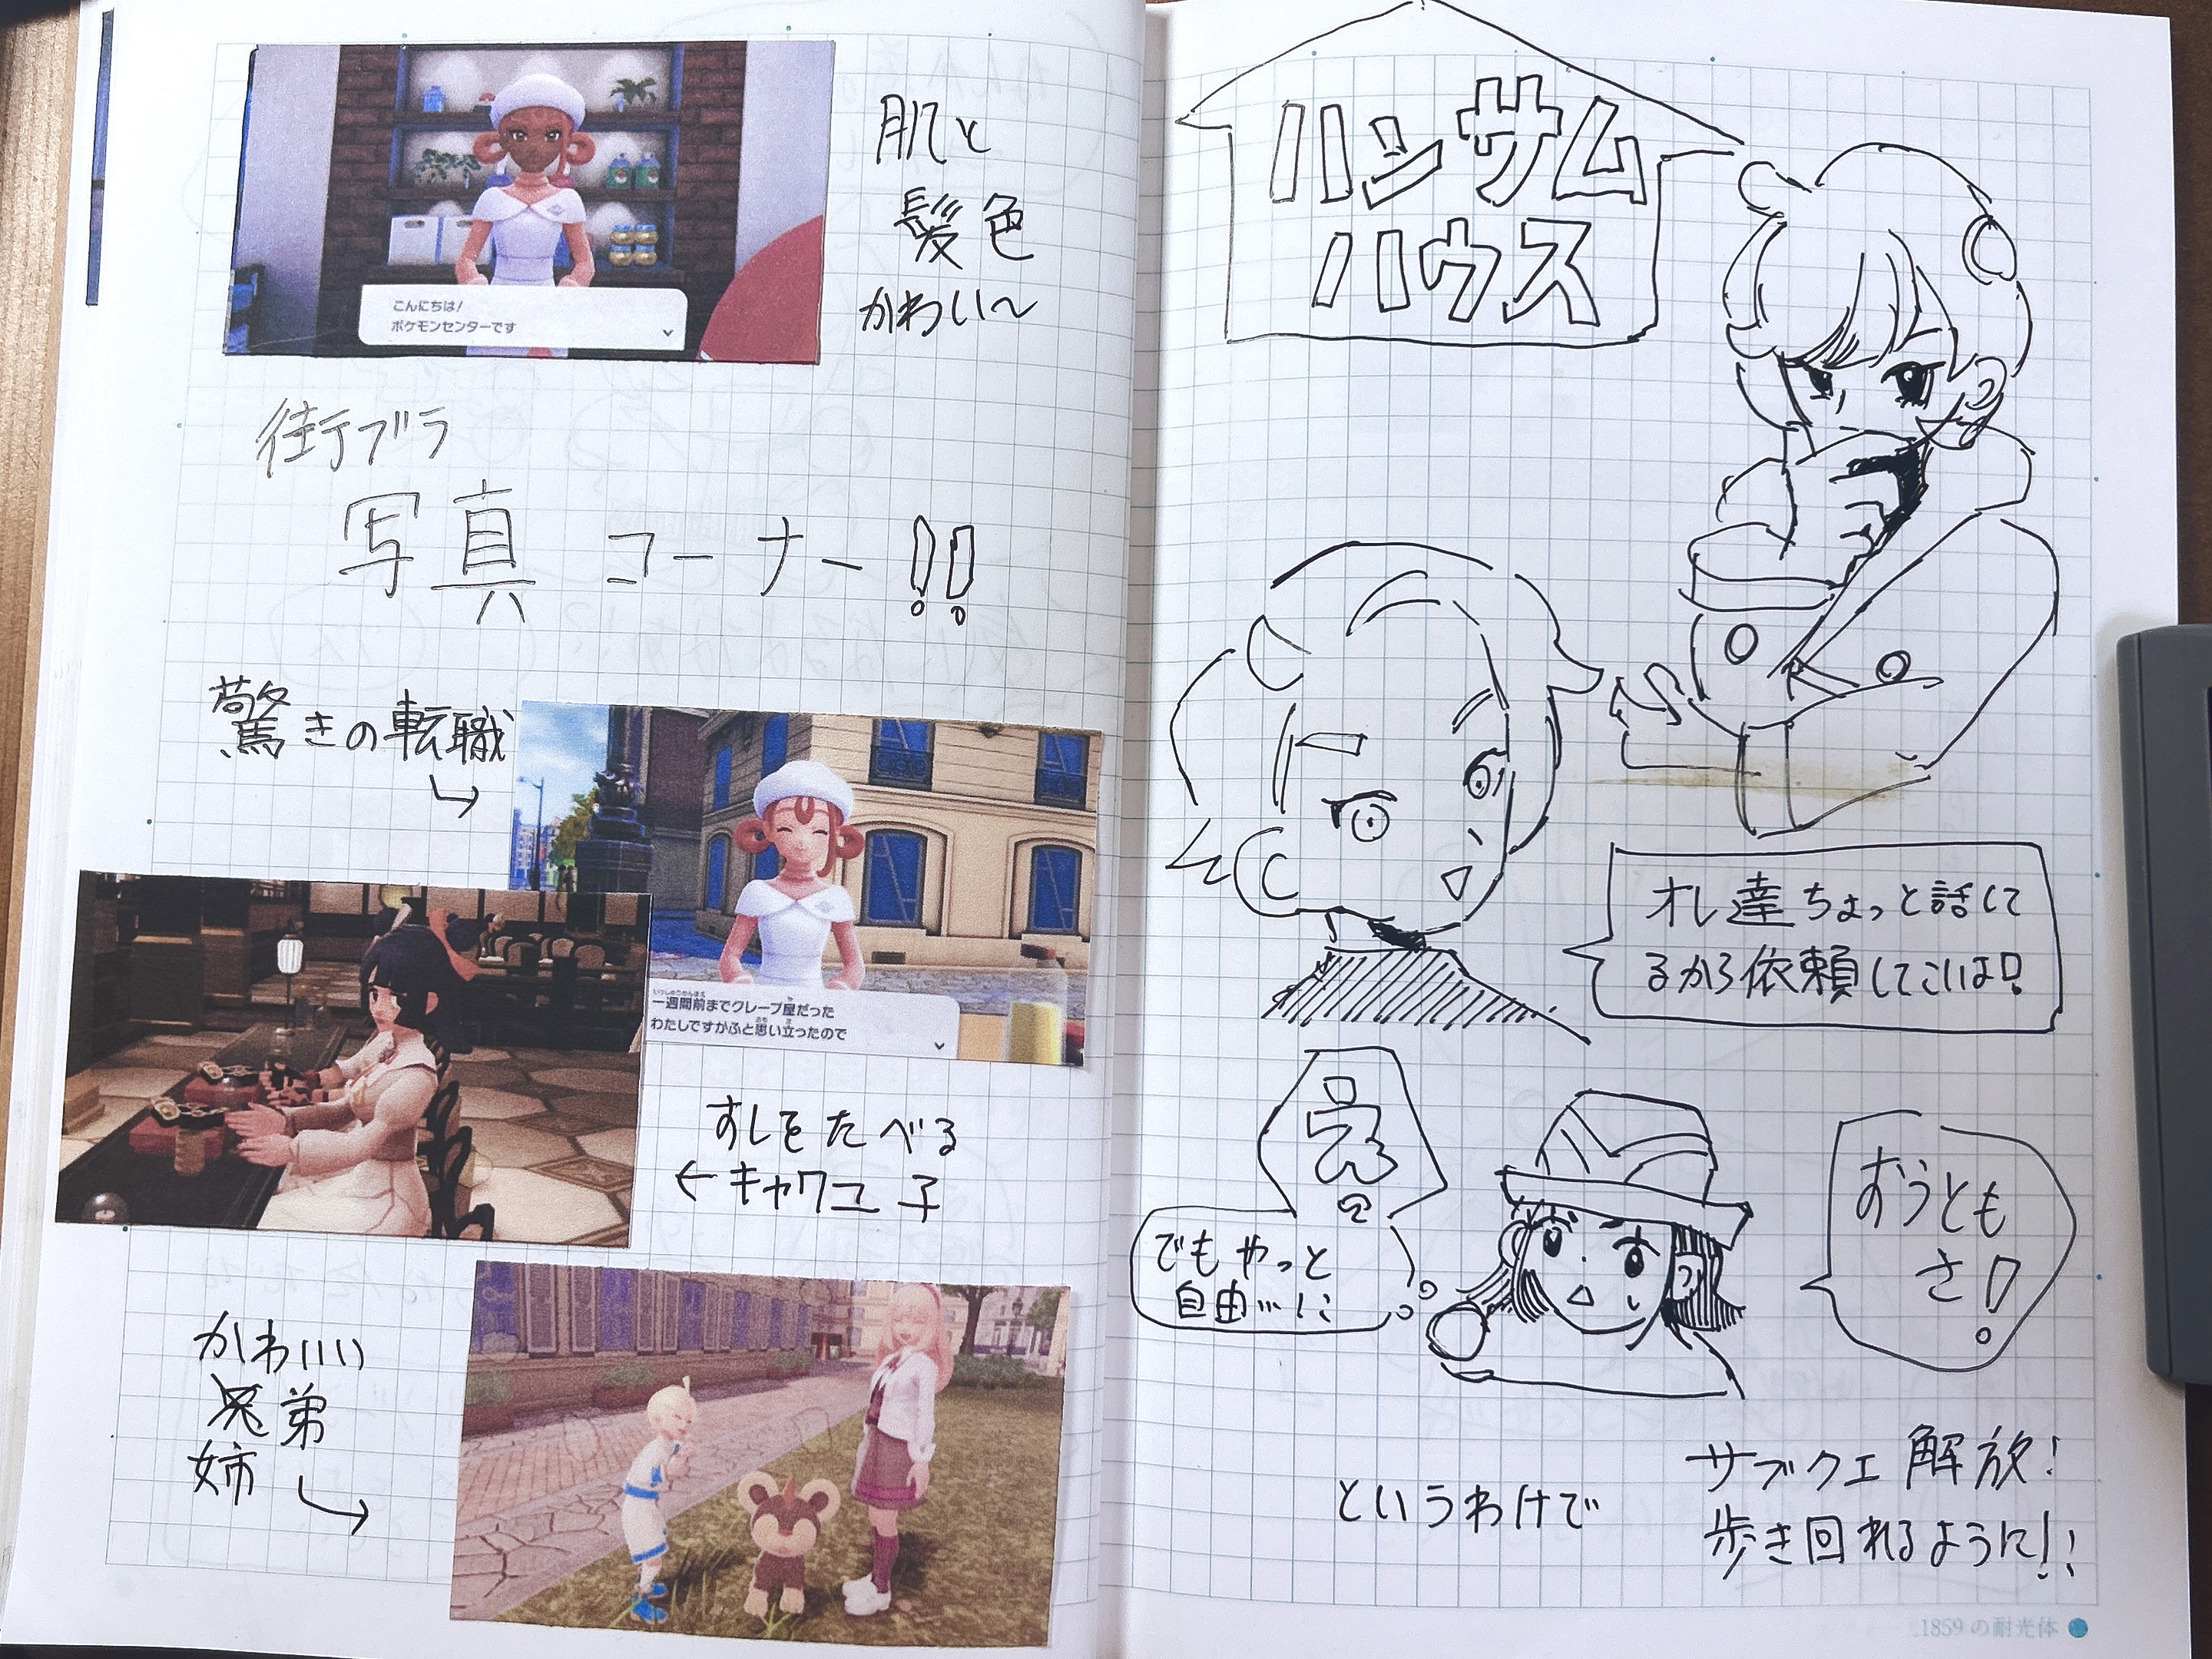 こんにちは!
ポケモンセンターです
肌と
髪色
かわい〜
街ブラ
写真コーナー!!
驚きの転職
一週間前までクレープ屋だった
わたしですがふと思い立ったので
すしをたべる
←キャワユ子
かわいい
兄弟
姉
ハンサム
ハウス
オレ達ちょっと話して
るから依頼してこいよ!
でもやっと
自由…!!
おうとも
さ!
というわけで
サブクエ解放!
歩き回れるように!!
1859の耐光体